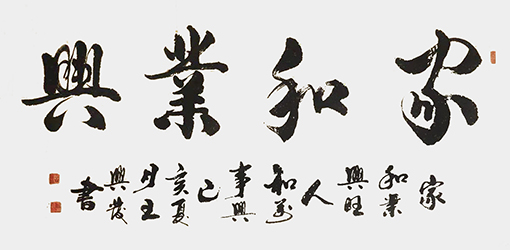 家和業興
家和業興旺人和萬事興己亥夏月王興書